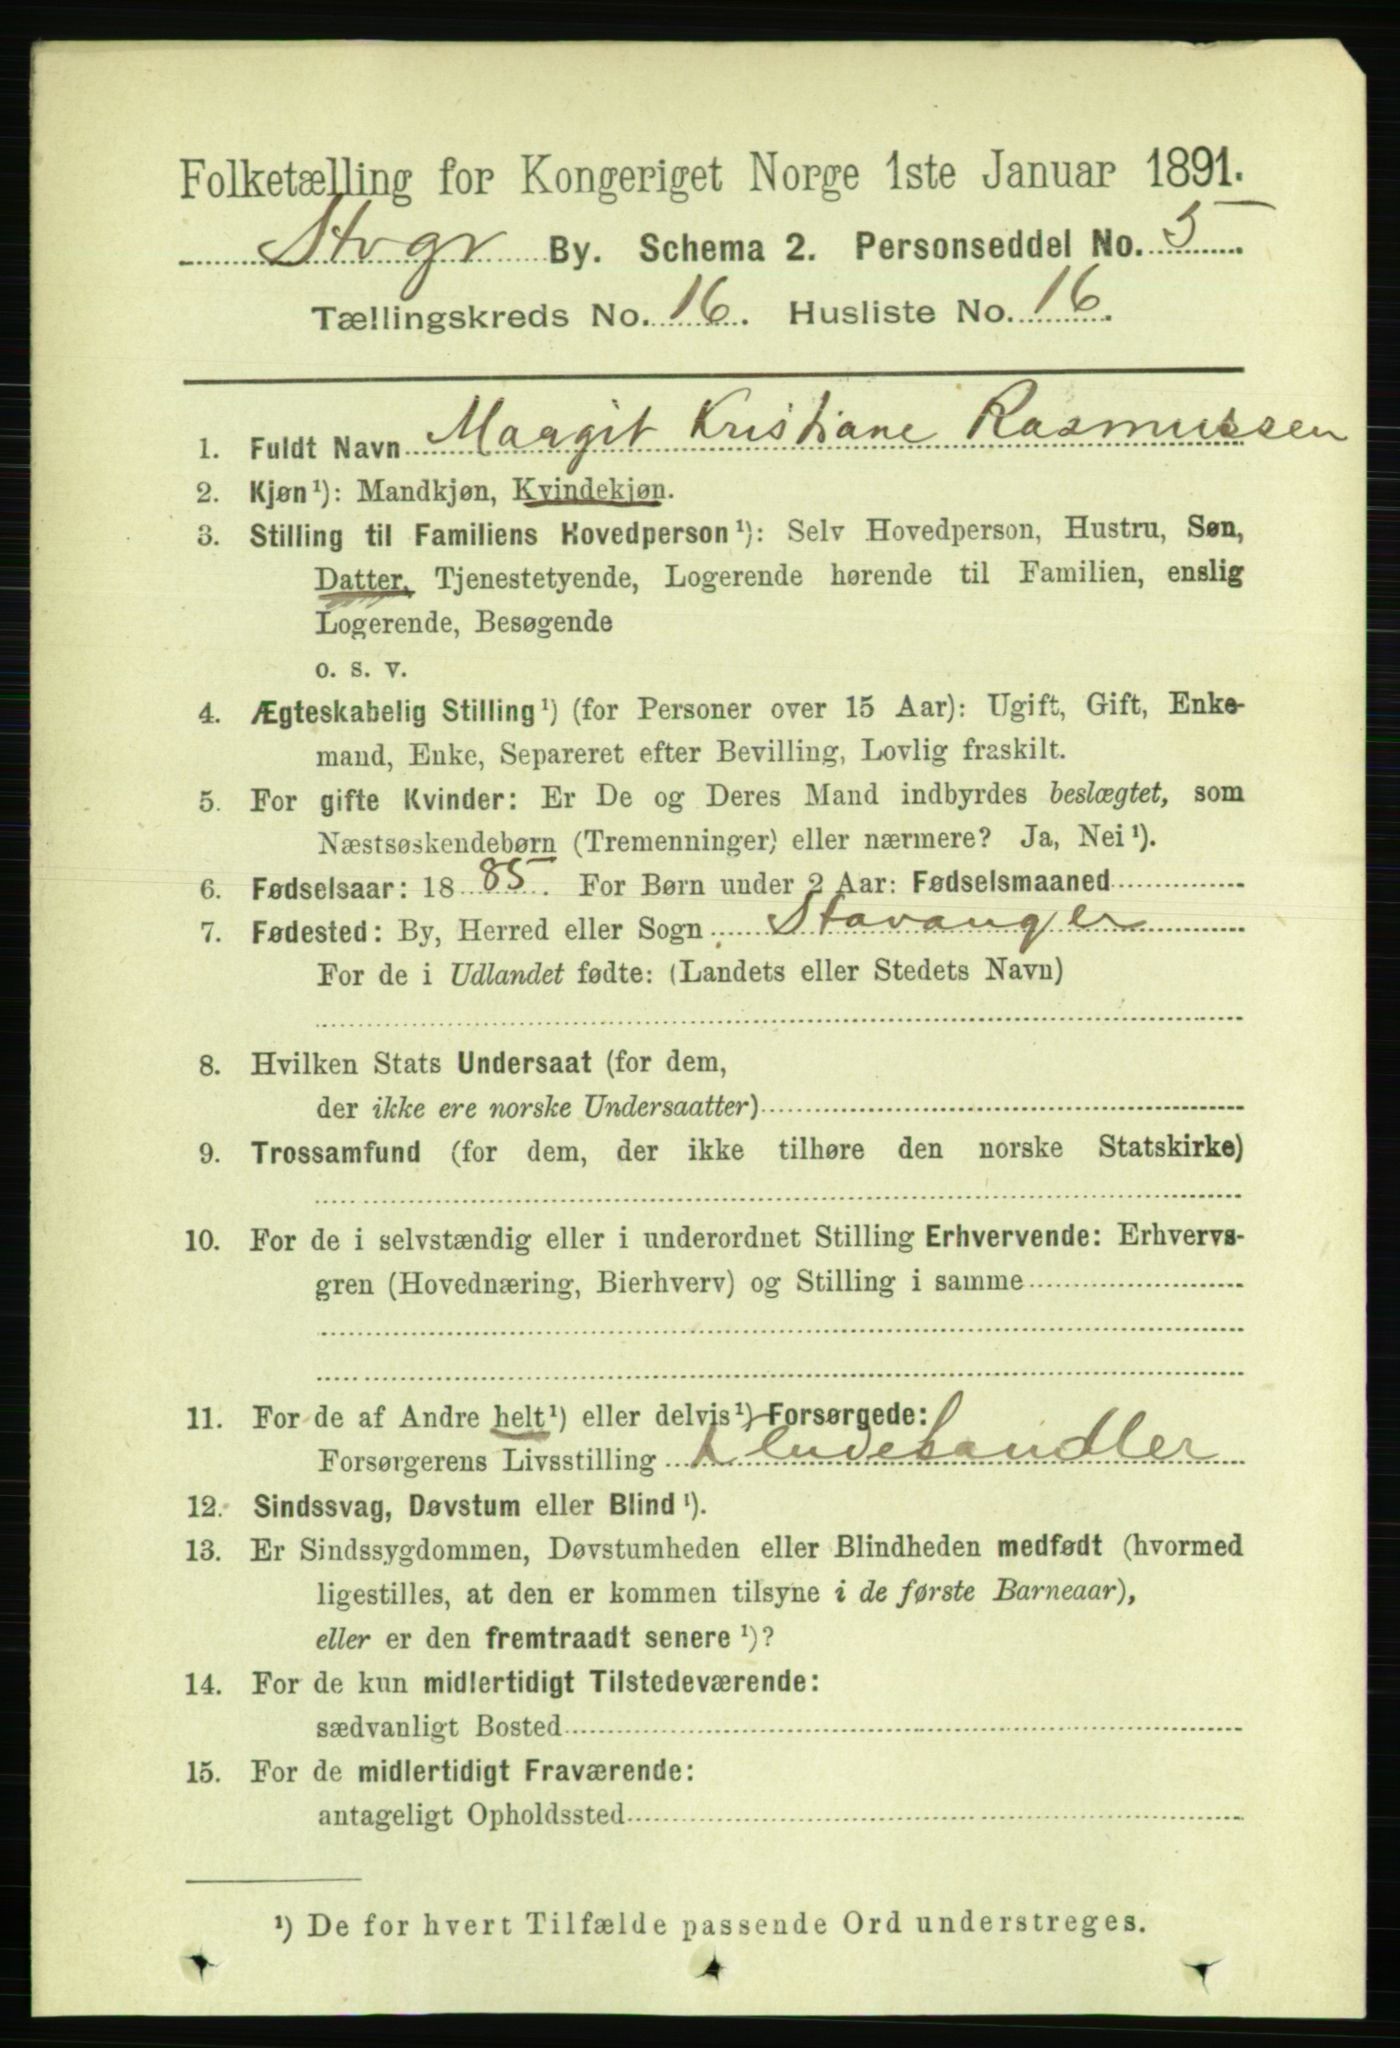 Folketælling for Kongeriget Norge 1ste Januar 1891.
Stvgr By. Schema 2. Personseddel No. 5
Tællingskreds No. 16. Husliste No. 16.
1. Fuldt Navn Maagit Kristiane Rasmussen
2. Kjøn¹): Mandkjøn, Kvindekjøn.
3. Stilling til Familiens Hovedperson¹): Selv Hovedperson, Hustru, Søn,
Datter, Tjenestetyende, Logerende hørende til Familien, enslig
Logerende, Besøgende
o. s. v.
4. Ægteskabelig Stilling¹) (for Personer over 15 Aar): Ugift, Gift, Enke-
mand, Enke, Separeret efter Bevilling, Lovlig fraskilt.
5. For gifte Kvinder: Er De og Deres Mand indbyrdes beslægtet, som
Næstsøskendebørn (Tremenninger) eller nærmere? Ja, Nei¹).
6. Fødselsaar: 1885. For Børn under 2 Aar: Fødselsmaaned
7. Fødested: By, Herred eller Sogn Stavanger
For de i Udlandet fødte: (Landets eller Stedets Navn)
8. Hvilken Stats Undersaat (for dem,
der ikke ere norske Undersaatter)
9. Trossamfund (for dem, der ikke tilhøre den norske Statskirke)
10. For de i selvstændig eller i underordnet Stilling Erhvervende: Erhvervs-
gren (Hovednæring, Bierhverv) og Stilling i samme
11. For de af Andre helt¹) eller delvis¹) Forsørgede:
Forsørgerens Livsstilling
12. Sindssvag, Døvstum eller Blind¹).
13. Er Sindssygdommen, Døvstumheden eller Blindheden medfødt (hvormed
ligestilles, at den er kommen tilsyne i de første Barneaar),
eller er den fremtraadt senere¹)?
14. For de kun midlertidigt Tilstedeværende:
sædvanligt Bosted
15. For de midlertidigt Fraværende:
antageligt Opholdssted
¹) De for hvert Tilfælde passende Ord understreges.